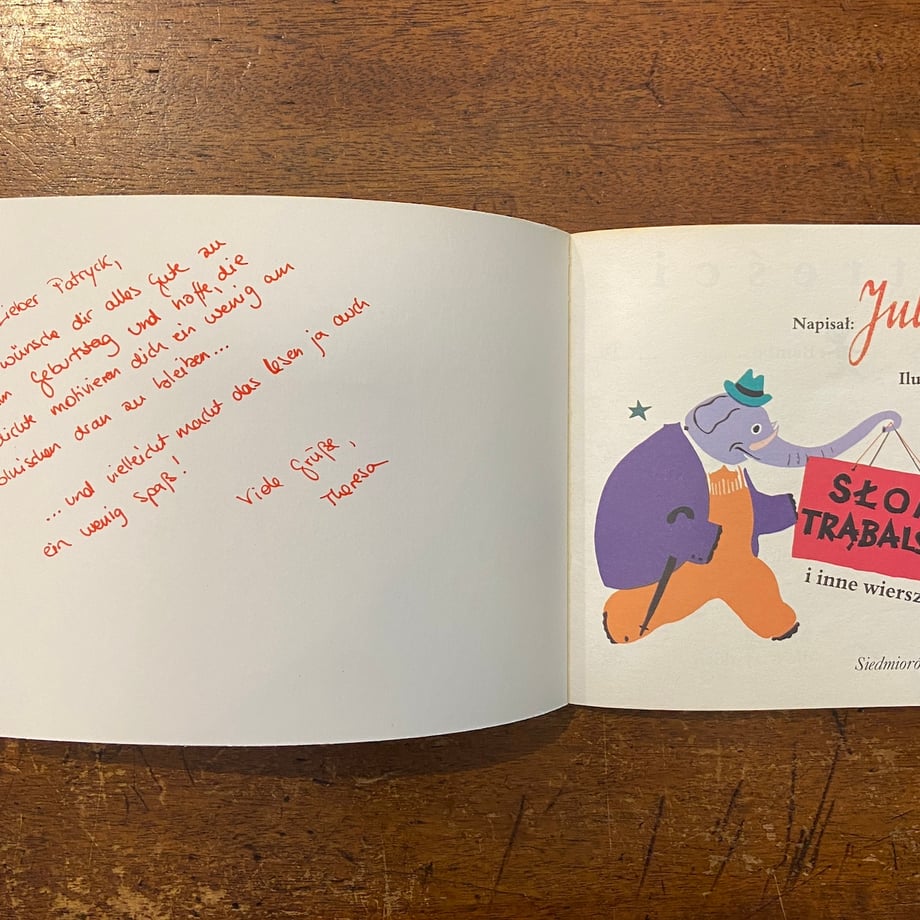 Lieber Patryck,
wünsche dir alles Gute zu
Geburtstag und hoffe, die
dichte motivieren dich ein wenig am
olnischen dran zu bleiben...
... und vielleicht macht das lesen ja auch
ein wenig Spaß!
Viele Grüße,
Theresa
treści
Napisał: Jul
Ilu
SŁOŃ
TRĄBALS
i inne wiersz
Siedmioró